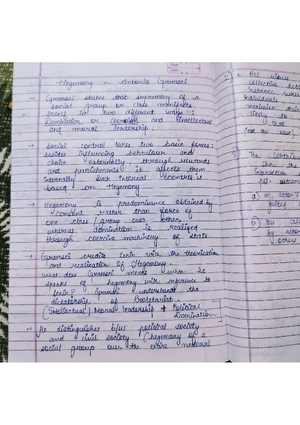 Hegemony ~ Antonio Gramsci
→ Gramsci states that supremacy of a
social group or class manifests
itself in two different ways:
Domination or coercion and intellectual
and moral leadership.
→ Social control takes two basic forms:
besides influencing behaviour and
choice externally through rewards
and punishments it affects them
internally. Such internal control is
based on Hegemony
→ Hegemony is predominance obtained by
consent rather than force of
one class/group over others;
whereas domination is realized
through coercive machinery of state
→ Gramsci credits Lenin with the
and realization of Hegemony.
what does Gramsci means when he
speaks of hegemony with reference to
Lenin? Gramsci understands the
dictatorship of Proletariat.
(Intellectual/Moral leadership + Political
Domination
→ He distinguishes b/w political society
and civil society (hegemony of a
social group over the entire national
2)
His
collective
instance
individuals
maximise
likely to
The
they
interaction
foll.
a)
b)
by
others